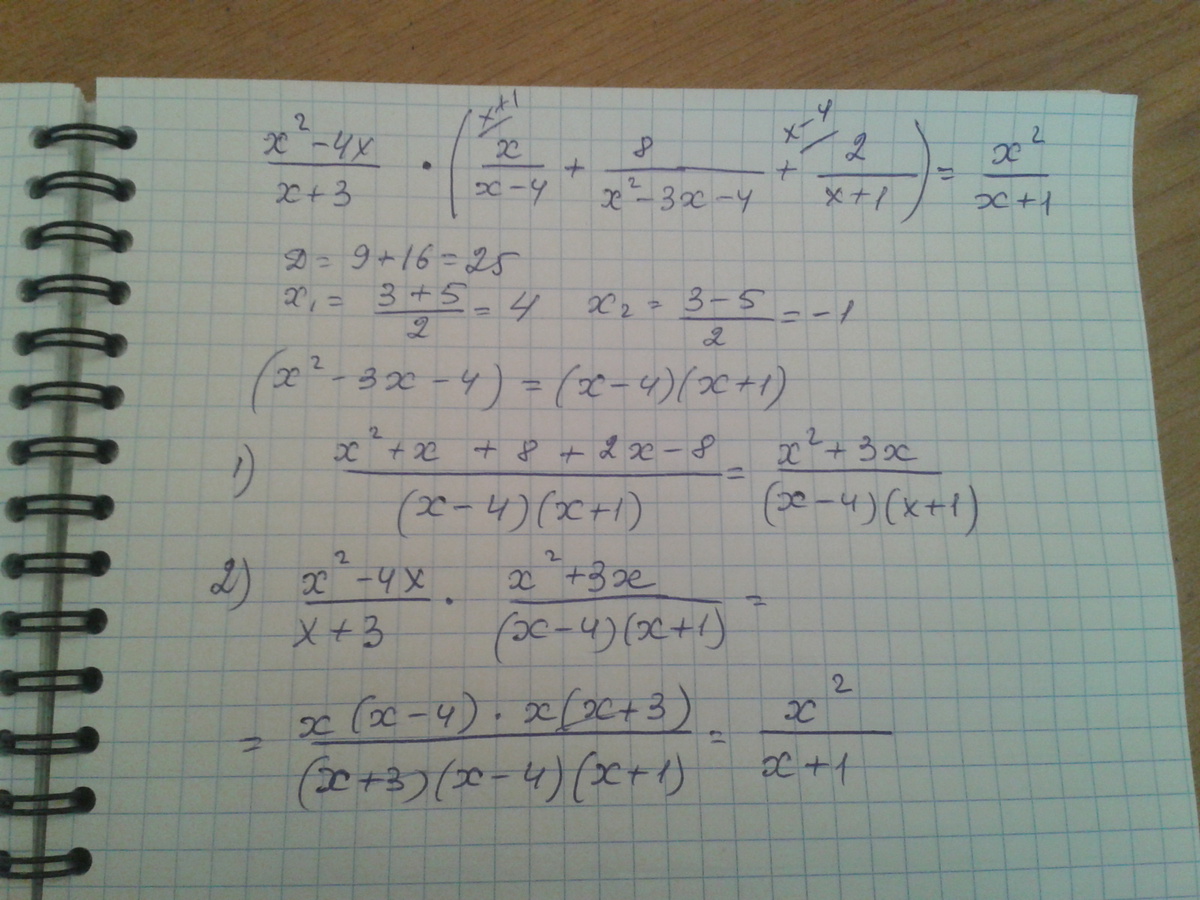 x+1 x-4
(x² - 4x)/(x + 3) · (x/(x - 4) + 8/(x² - 3x - 4) + 2/(x + 1)) = x²/(x + 1)
D = 9 + 16 = 25
x₁ = (3 + 5)/2 = 4 x₂ = (3 - 5)/2 = -1
(x² - 3x - 4) = (x - 4)(x + 1)
1) (x² + x + 8 + 2x - 8)/((x - 4)(x + 1)) = (x² + 3x)/((x - 4)(x + 1))
2) (x² - 4x)/(x + 3) · (x² + 3x)/((x - 4)(x + 1)) =
= (x(x - 4) · x(x + 3))/((x + 3)(x - 4)(x + 1)) = x²/(x + 1)